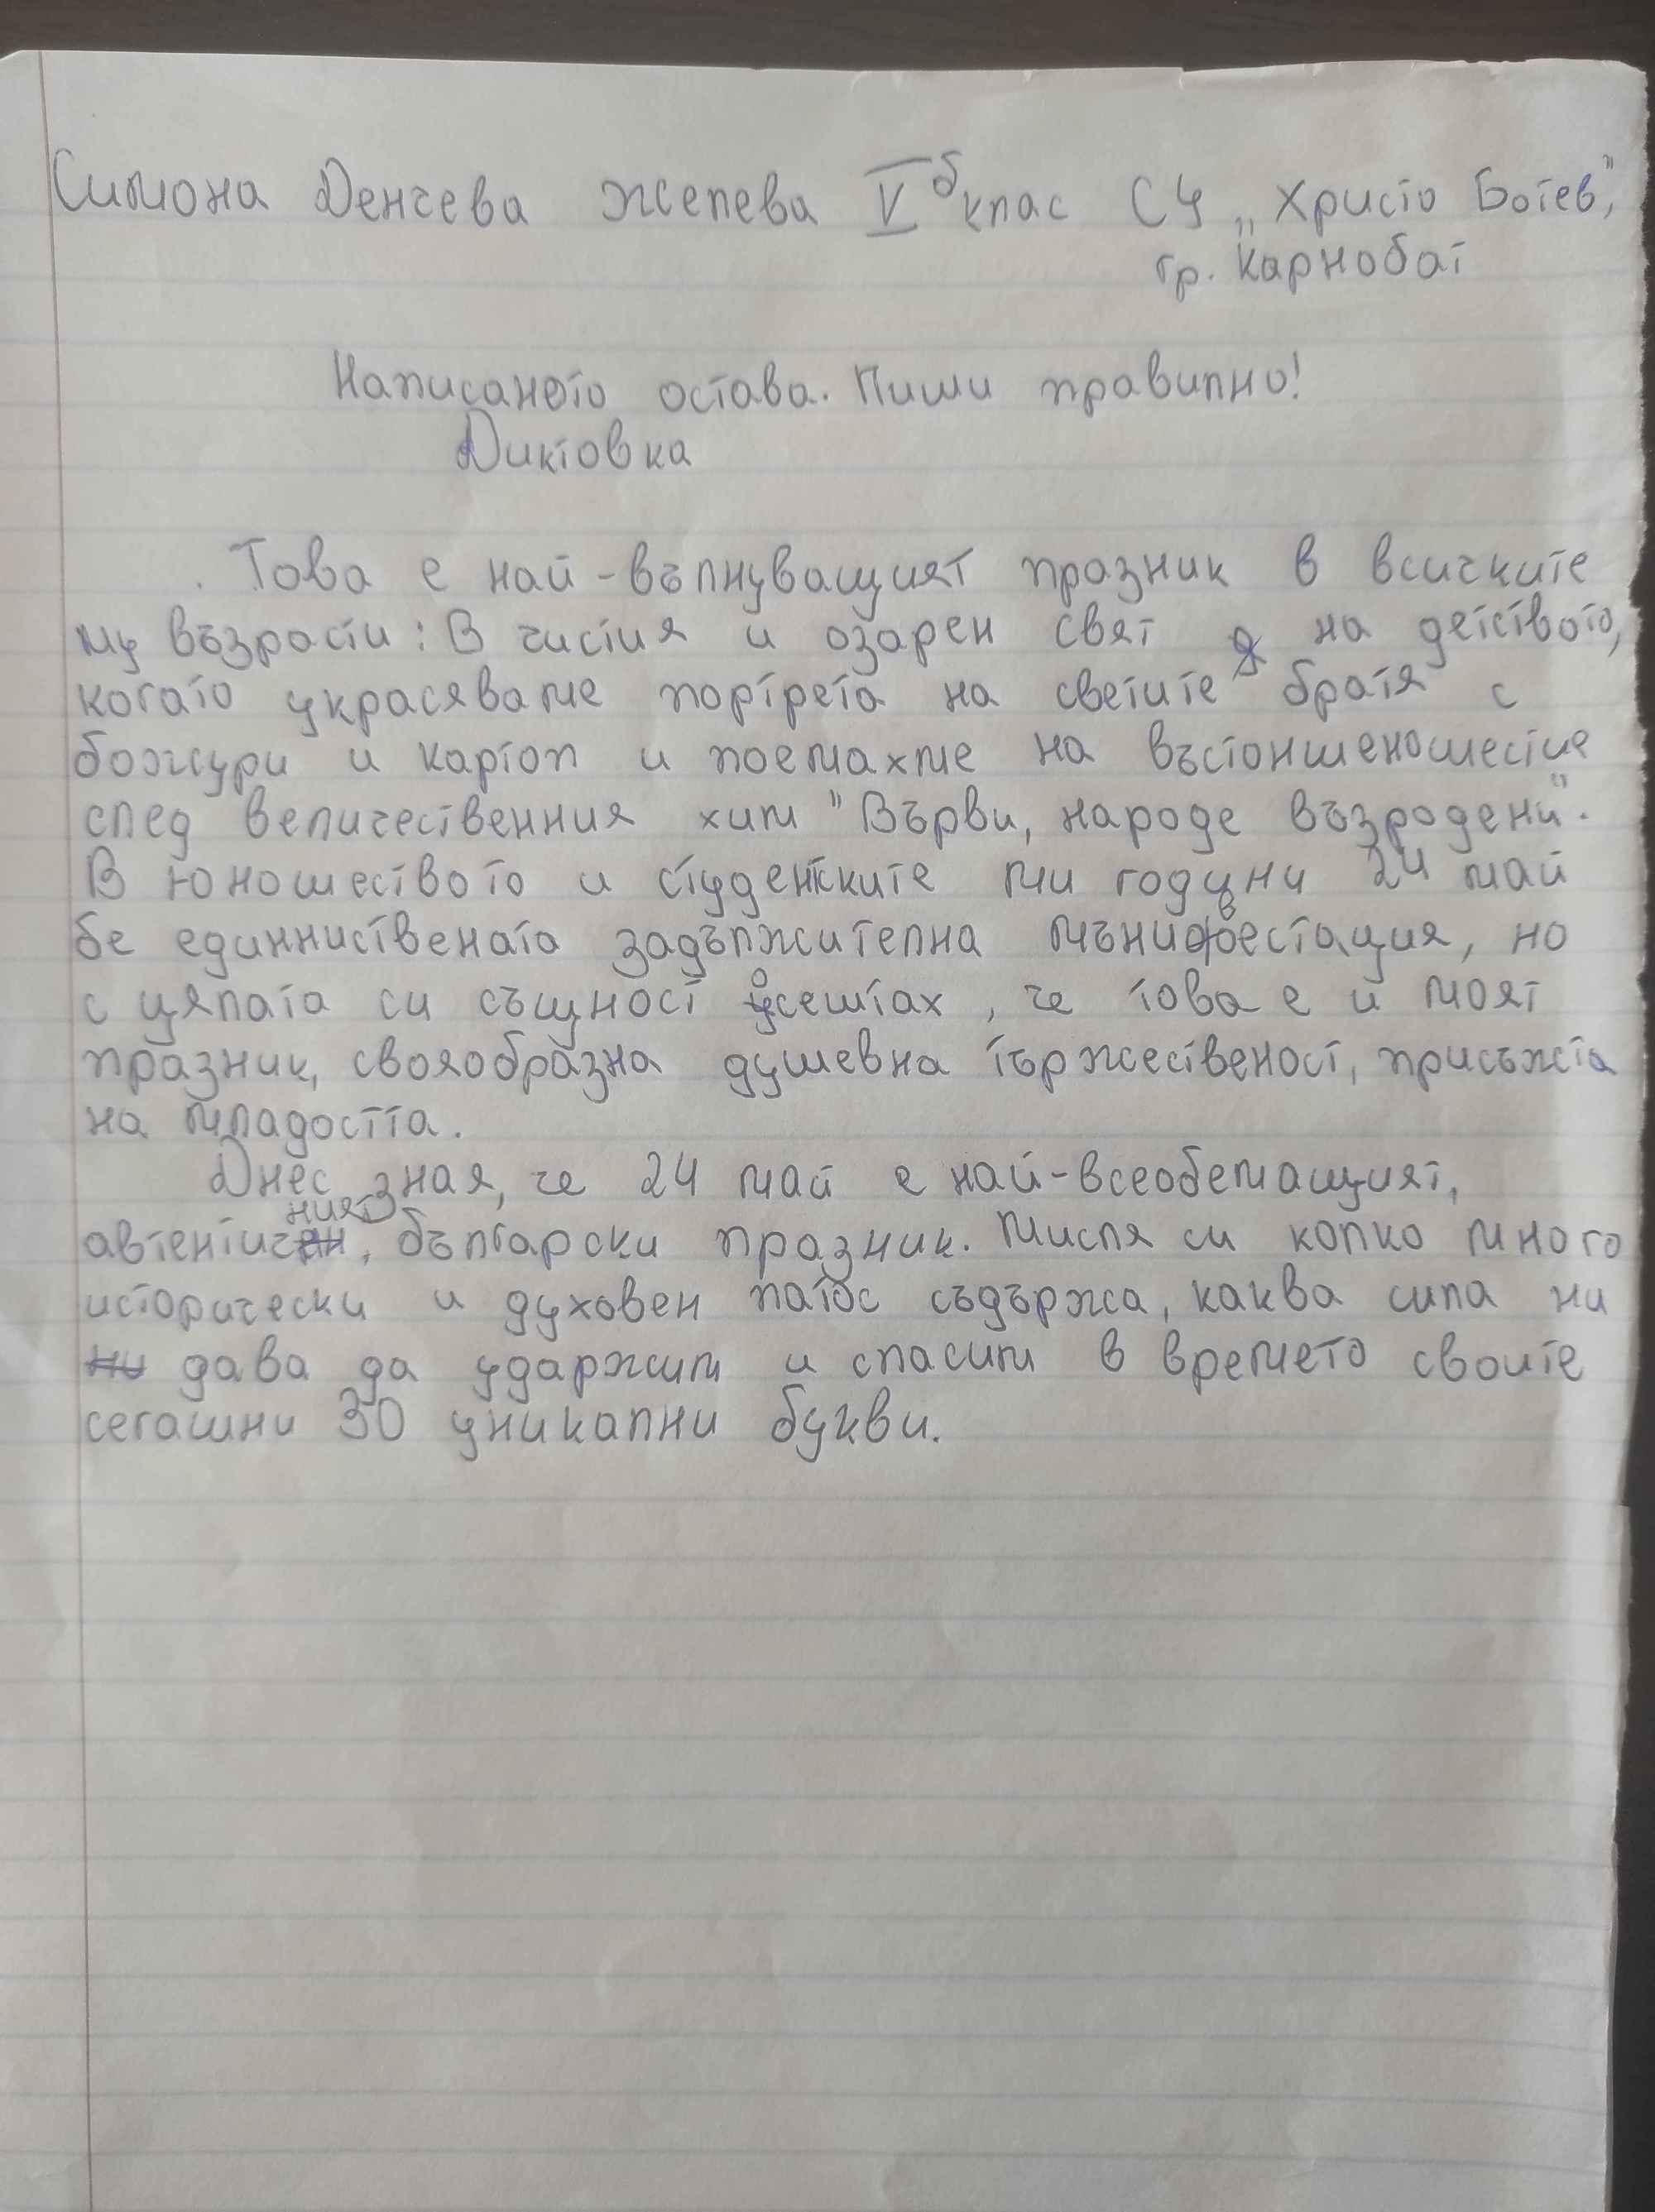 Симона Денчева Желева V б клас СУ „Христо Ботев",
гр. Карнобат
Написаното остава. Пиши правилно!
Диктовка
Това е най-вълнуващият празник в всичките
му възрасти: В чистия и озарен свят на детството,
когато украсяваме портрета на светите братя с
божури и картоп и поемахме на въстоншеношестие
след величествения химн "Върви, народе възродени".
В юношеството и студентските ми години 24 май
бе единниствената задължителна мънифестация, но
с цялата си същност усештах, че това е и моят
празник, свояобразна душевна тържественост, присъжта
на младостта.
Днес зная, че 24 май е най-всеобемащият,
автентичният, български празник. Мисля си колко много
исторически и духовен патос съдържа, каква сила ни
дава да ударжим и спасим в времето своите
сегашни 30 уникални букви.